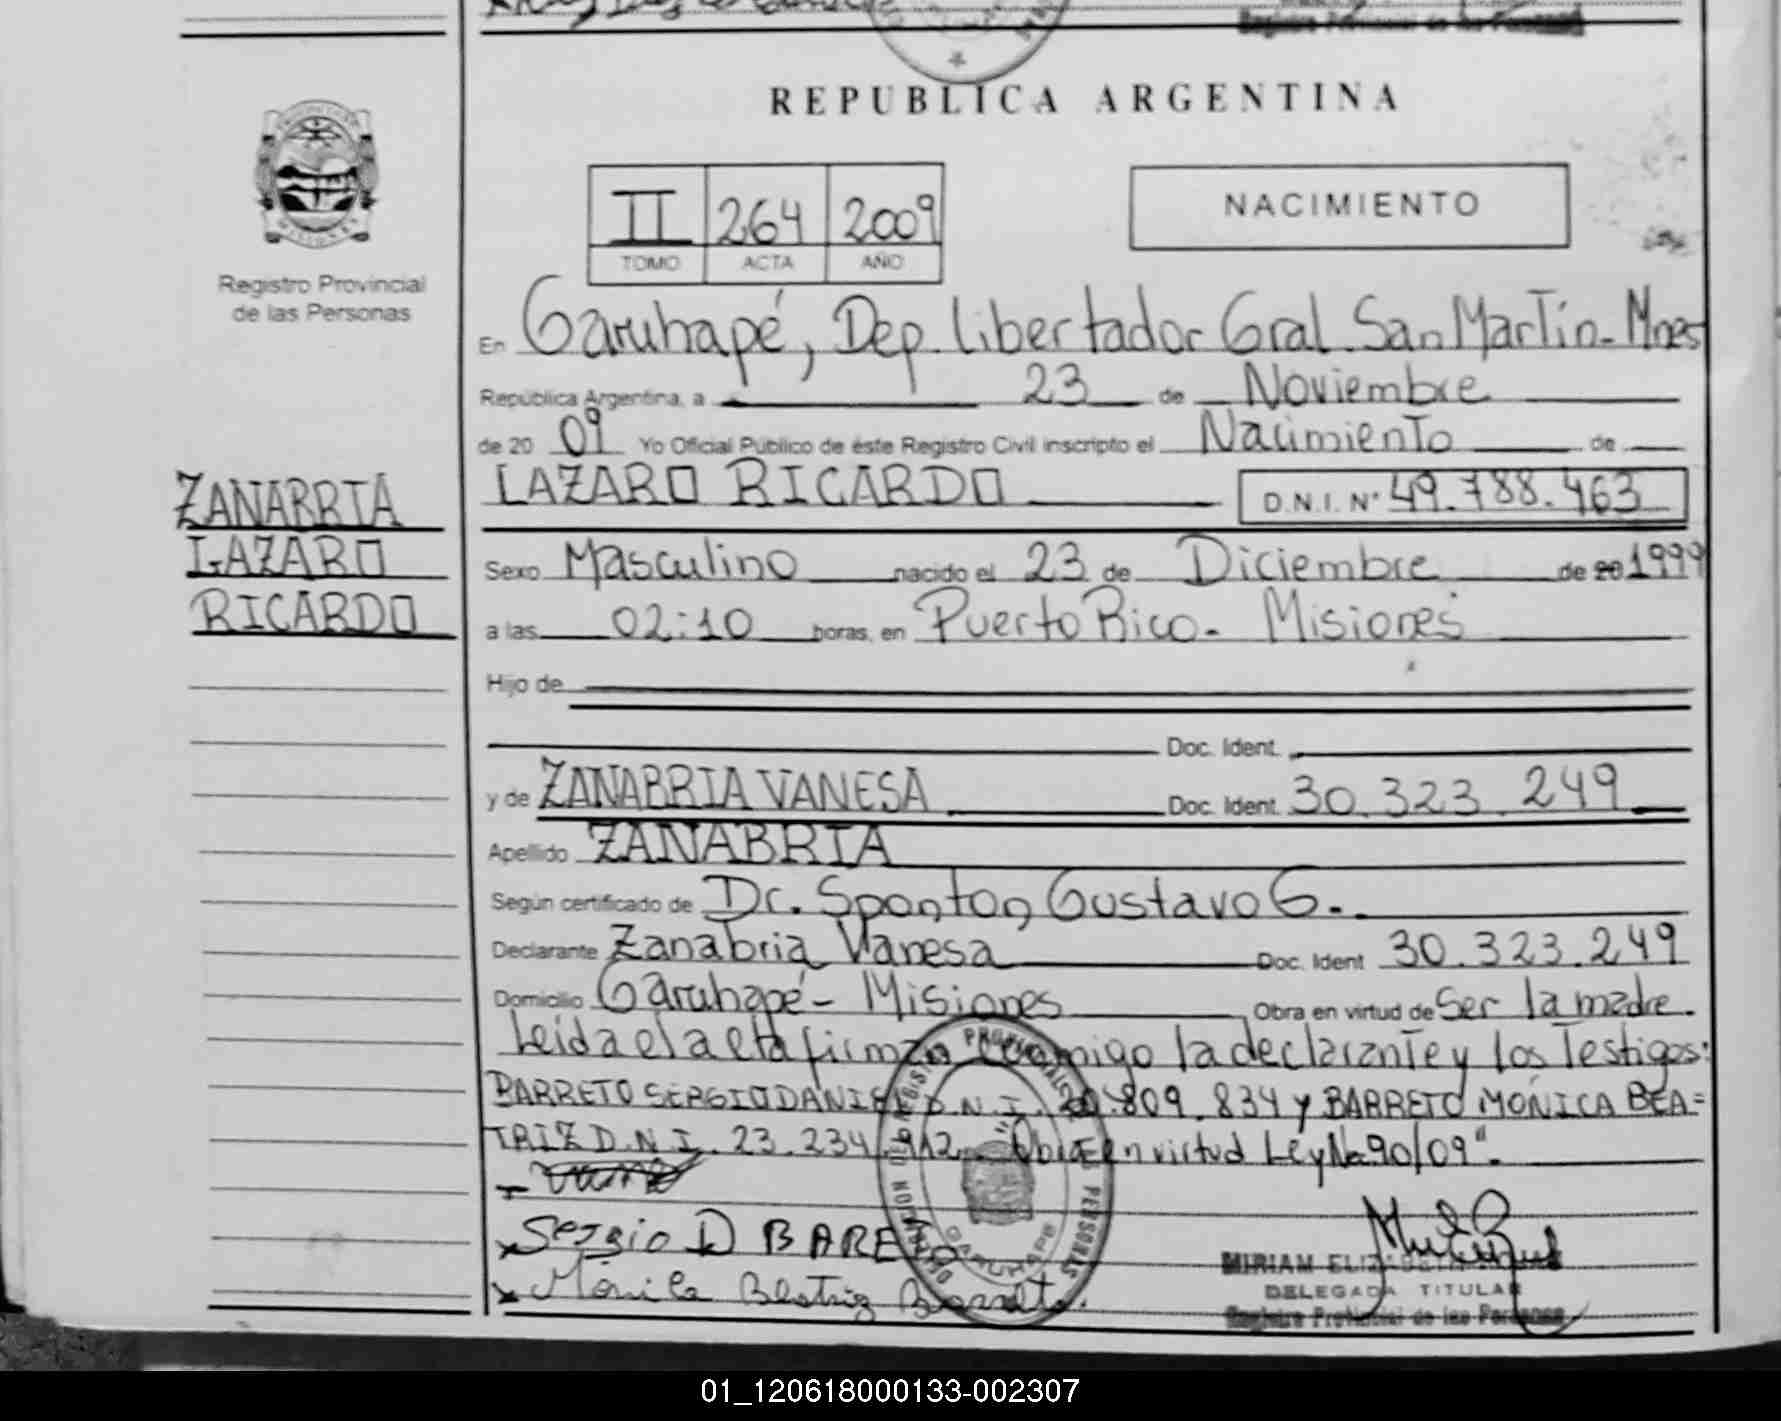 REPUBLICA ARGENTINA
II 264 2009
TOMO ACTA AÑO
NACIMIENTO
Registro Provincial
de las Personas
En Garuhapé, Dep. Libertador Gral. San Martín - Mnes
República Argentina, a 23 de Noviembre
de 20 09 Yo Oficial Público de éste Registro Civil inscripto el Nacimiento de
ZANABRIA
LAZARO
RICARDO
LAZARO RICARDO D.N.I. N° 49.788.463
Sexo Masculino nacido el 23 de Diciembre de 20 1999
a las 02:10 horas, en Puerto Rico - Misiones
Hijo de
Doc. Ident.
y de ZANABRIA VANESA Doc. Ident. 30.323.249
Apellido ZANABRIA
Según certificado de Dr. Sponton, Gustavo G.
Declarante Zanabria Vanesa Doc. Ident 30.323.249
Domicilio Garuhapé - Misiones Obra en virtud de Ser la madre.
Leida el acta firman conmigo la declarante y los Testigos:
BARRETO SERGIO DANIEL D.N.I. .809.834 y BARRETO MONICA BEA=
TRIZ D.N.I. 23.234.912 "Obra en virtud Ley No 90/09".
Sergio D BARETO
Monica Beatriz Barreto.
MIRIAM
DELEGADA TITULAR
Registro Provincial de las Personas
01_120618000133-002307